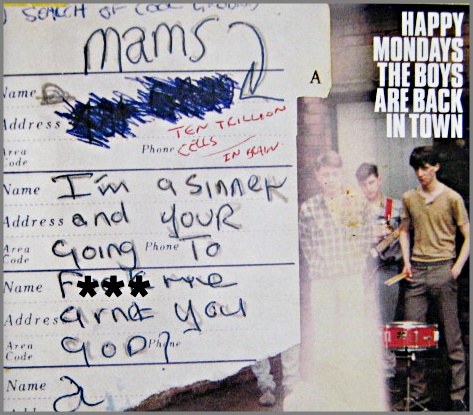 SEARCH OF COOL
mams
A
Name
Address
TEN TRILLION
Area Code Phone
CELLS
IN BRAIN
Name I'm a sinner
Address and youR
Area Code Going Phone To
Name F*** me
Address arnt you
Area Code GOD? Phone
Name a
HAPPY
MONDAYS
THE BOYS
ARE BACK
IN TOWN